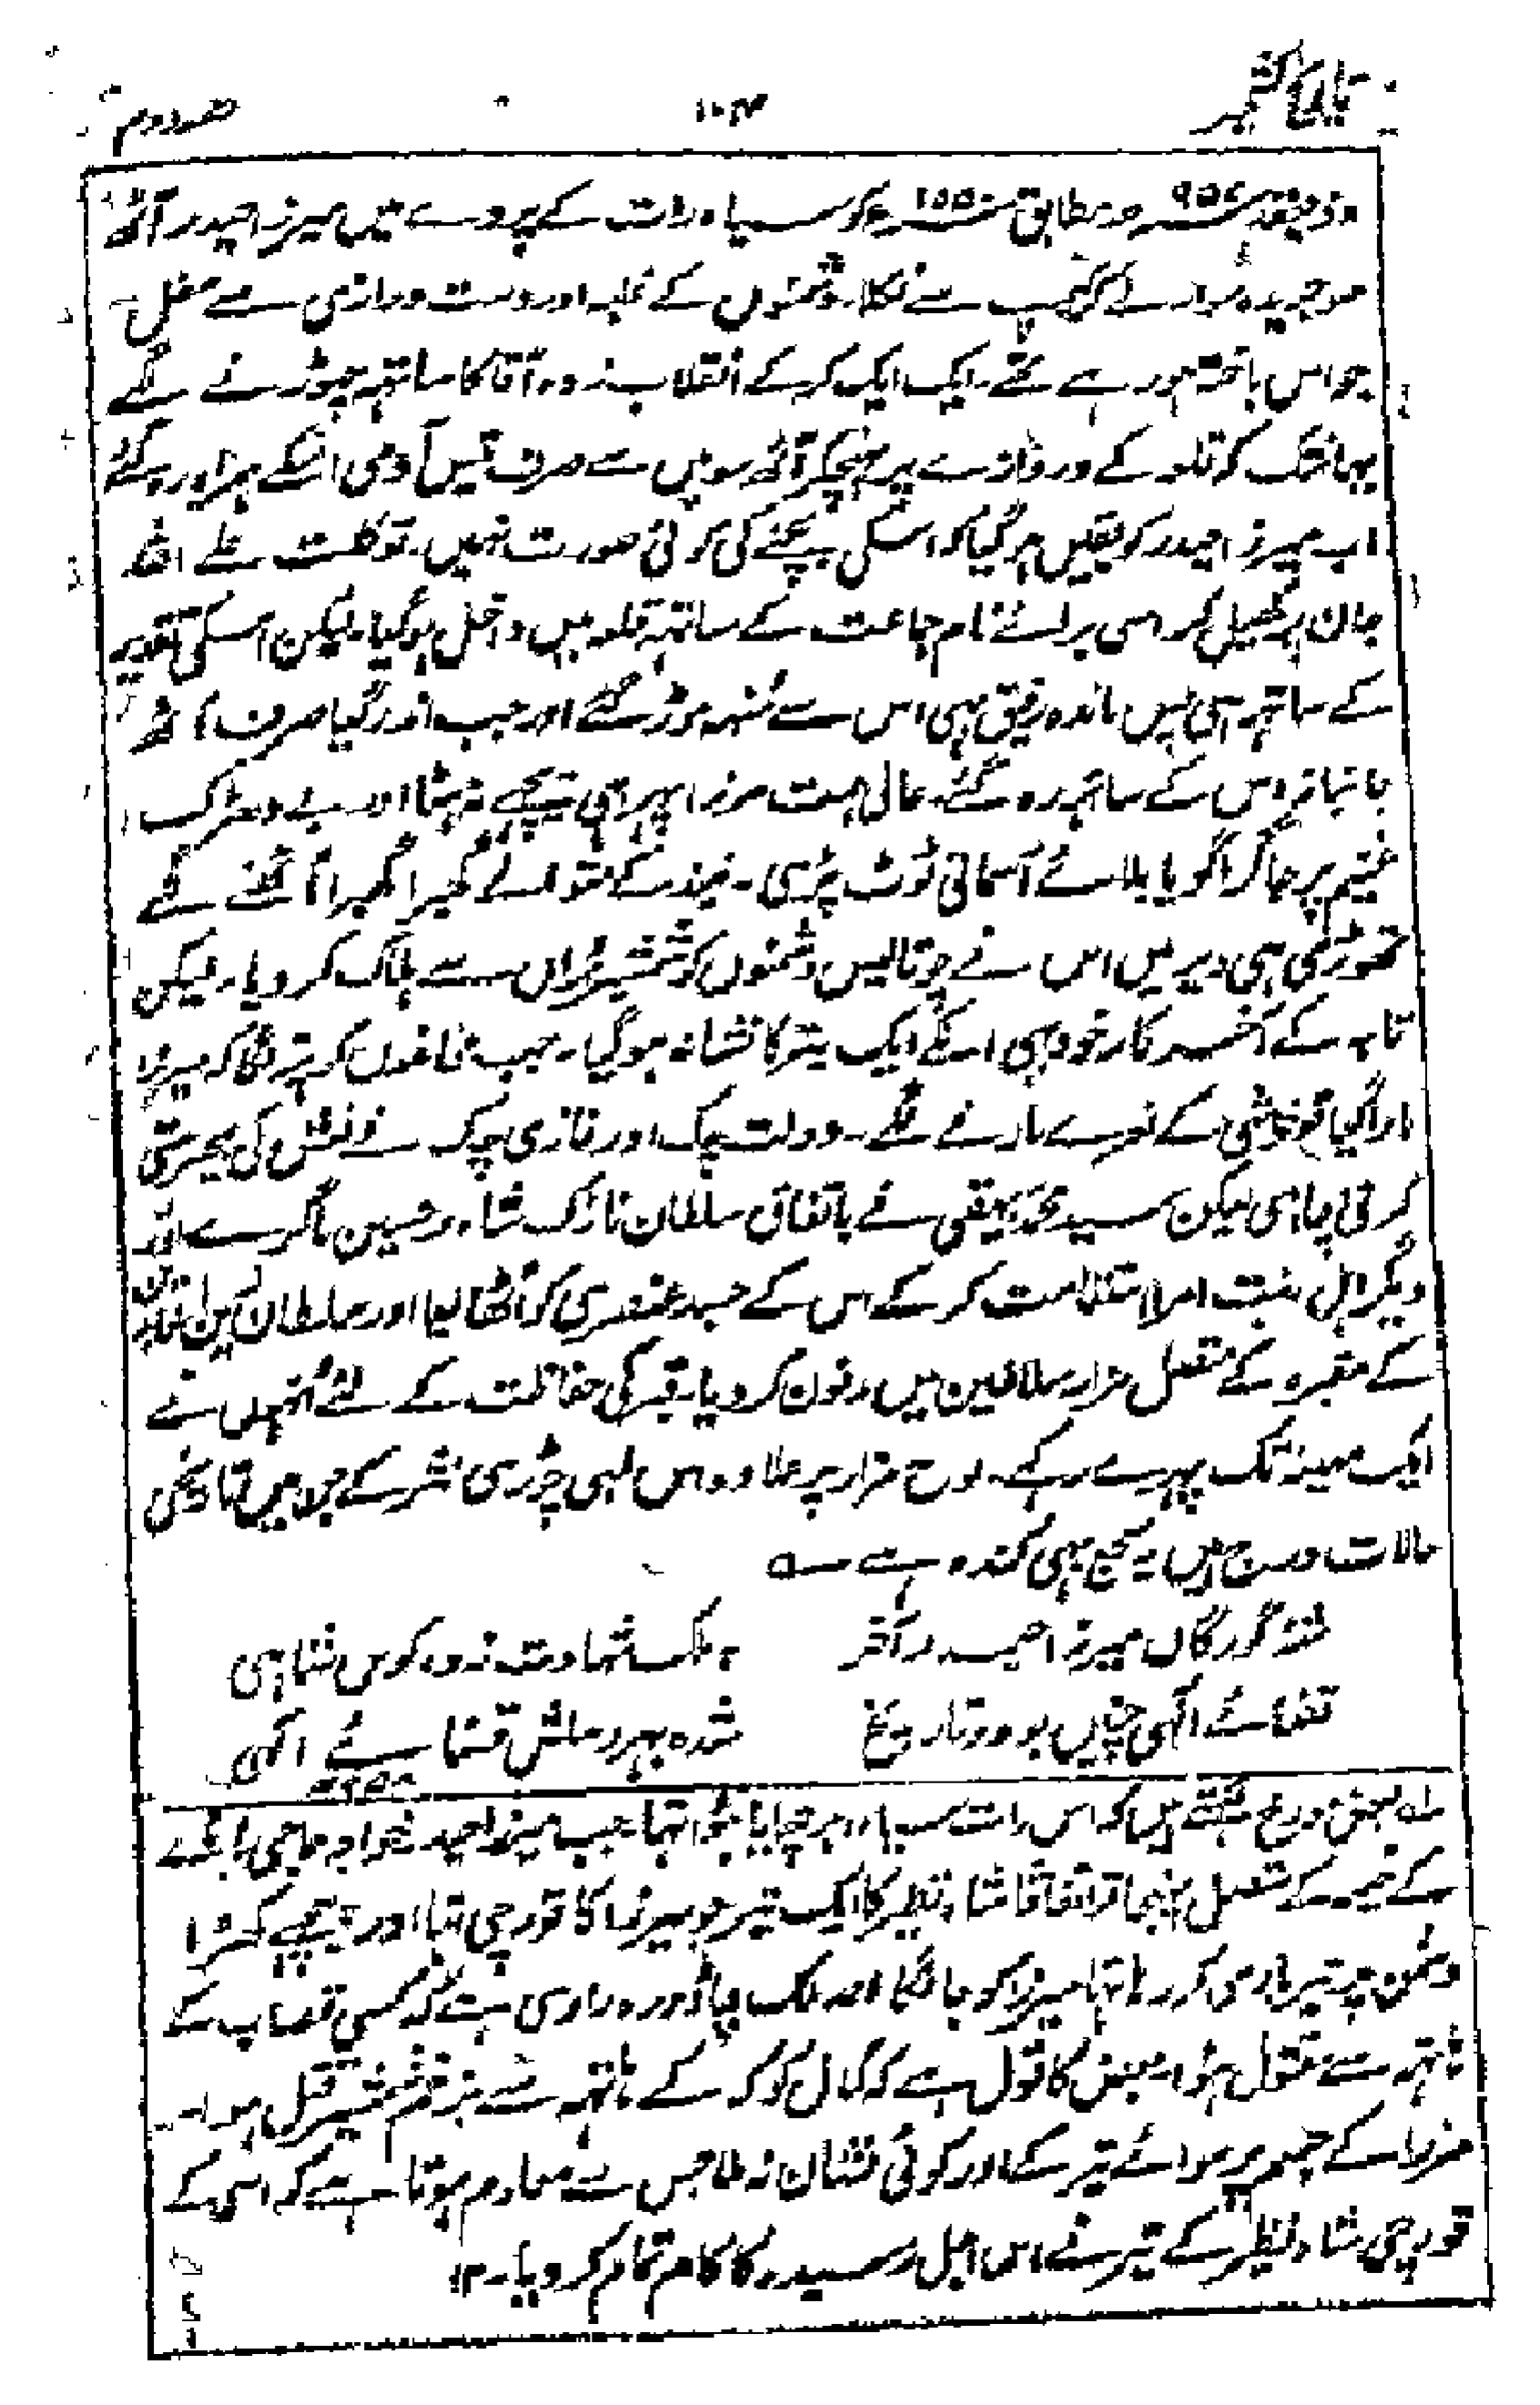 تاریخ کشمیر ۱۰۴ حصہ دوم
ذیقعد ۹۵۷ھ مطابق ۱۵۵۰ء کو سیاہ رات کے پردے میں میرزا حیدر آٹھ
سو جریدہ سوار لے کر کیمپ سے نکلا۔ دشمنوں کے غلبہ اور دست درازی سے مغل
حواس باختہ ہو رہے تھے۔ ایک ایک کر کے انقلاب زدہ آقا کا ساتھ چھوڑنے لگے
یہانتک کہ قلعہ کے دروازے پر پہنچکر آٹھ سو میں سے صرف تیس آدمی اسکے ہمراہ رہ گئے
اب میرزا حیدر کو یقین ہو گیا کہ اسکی بچنے کی کوئی صورت نہیں۔ توکلت علے اللہ
جان پر کھیل کر اسی برائے نام جماعت کے ساتھ قلعہ میں داخل ہو گیا۔ لیکن اسکی تقدیر
کے ساتھ ہی پس ماندہ رفیق بھی اس سے منہ موڑ گئے اور جب اندر گیا صرف آٹھ
جانباز اس کے ساتھ رہ گئے۔ عالی ہمت مرزا پھر بھی پیچھے نہ ہٹا اور بے دھڑک
غنیم پر جا گرا گویا بلائے آسمانی ٹوٹ پڑی۔ نیند کے متوالے گھبرا گھبرا اُٹھنے لگے
تھوڑی ہی دیر میں اس نے چوتالیس دشمنوں کو شمشیر بُراں سے ہلاک کر دیا۔ لیکن
تا بہ کے آخر کار خود بھی اسکے ایک تیر کا نشانہ ہو گیا۔ جب مخالفوں کو پتہ لگا کہ میرزا
مارا گیا تو خوشی کے نعرے مارنے لگے۔ دولت چک اور غازی چک نے نعش کی بیحرمتی
کرنی چاہی لیکن سید محمد بیہقی نے باتفاق سلطان نازک شاہ و حسین ماگرے اور
دیگر اہل سنت امرا استقامت کر کے اس کے جسد عنصری کو اُٹھا لیا اور سلطان زین العابدین
کے مقبرہ کے متصل مزار سلاطین میں مدفون کر دیا۔ قبر کی حفاظت کے لئے اُنہوں نے
ایک مہینہ تک پہرے رکھے۔ لوح مزار پر علاوہ اس لمبی چوڑی نثر کے جس میں تاریخی
حالات درج ہیں یہ بھی کندہ ہے ؎
شہ گورگاں میرزا حیدر آخر بملک شہادت زدہ کوس شاہی
قضائے الٰہی چنیں بود و تاریخ شدہ بہر وصلش قضائے الٰہی
لہ بعض مورخ لکھتے ہیں کہ اس رات سیاہ ابر چھایا ہوا تھا جب میرزا حیدر خواجہ حاجی
کے خیمہ کے متصل پہنچا تو اتفاقاً شاہ نظیر کا ایک تیر جو میرزا کا قورچی تھا اور پیچھے کھڑا
دشمن پر تیر باری کر رہا تھا میرزا کو جا لگا اور ملک چاڈورہ راوی ہے کہ کسی قصاب کے
ہاتھ سے مقتول ہوا۔ بعض کا قول ہے کہ کمال کوکہ کے ہاتھ سے بزخم شمشیر قتل ہوا۔
مرزا کے جسم پر سوائے تیر کے اور کوئی نشان نہ تھا جس سے معلوم ہوتا ہے کہ اسی کے
قورچی شاہ نظیر کے تیر نے اس اجل رسیدہ کا کام تمام کر دیا۔ ۱۲